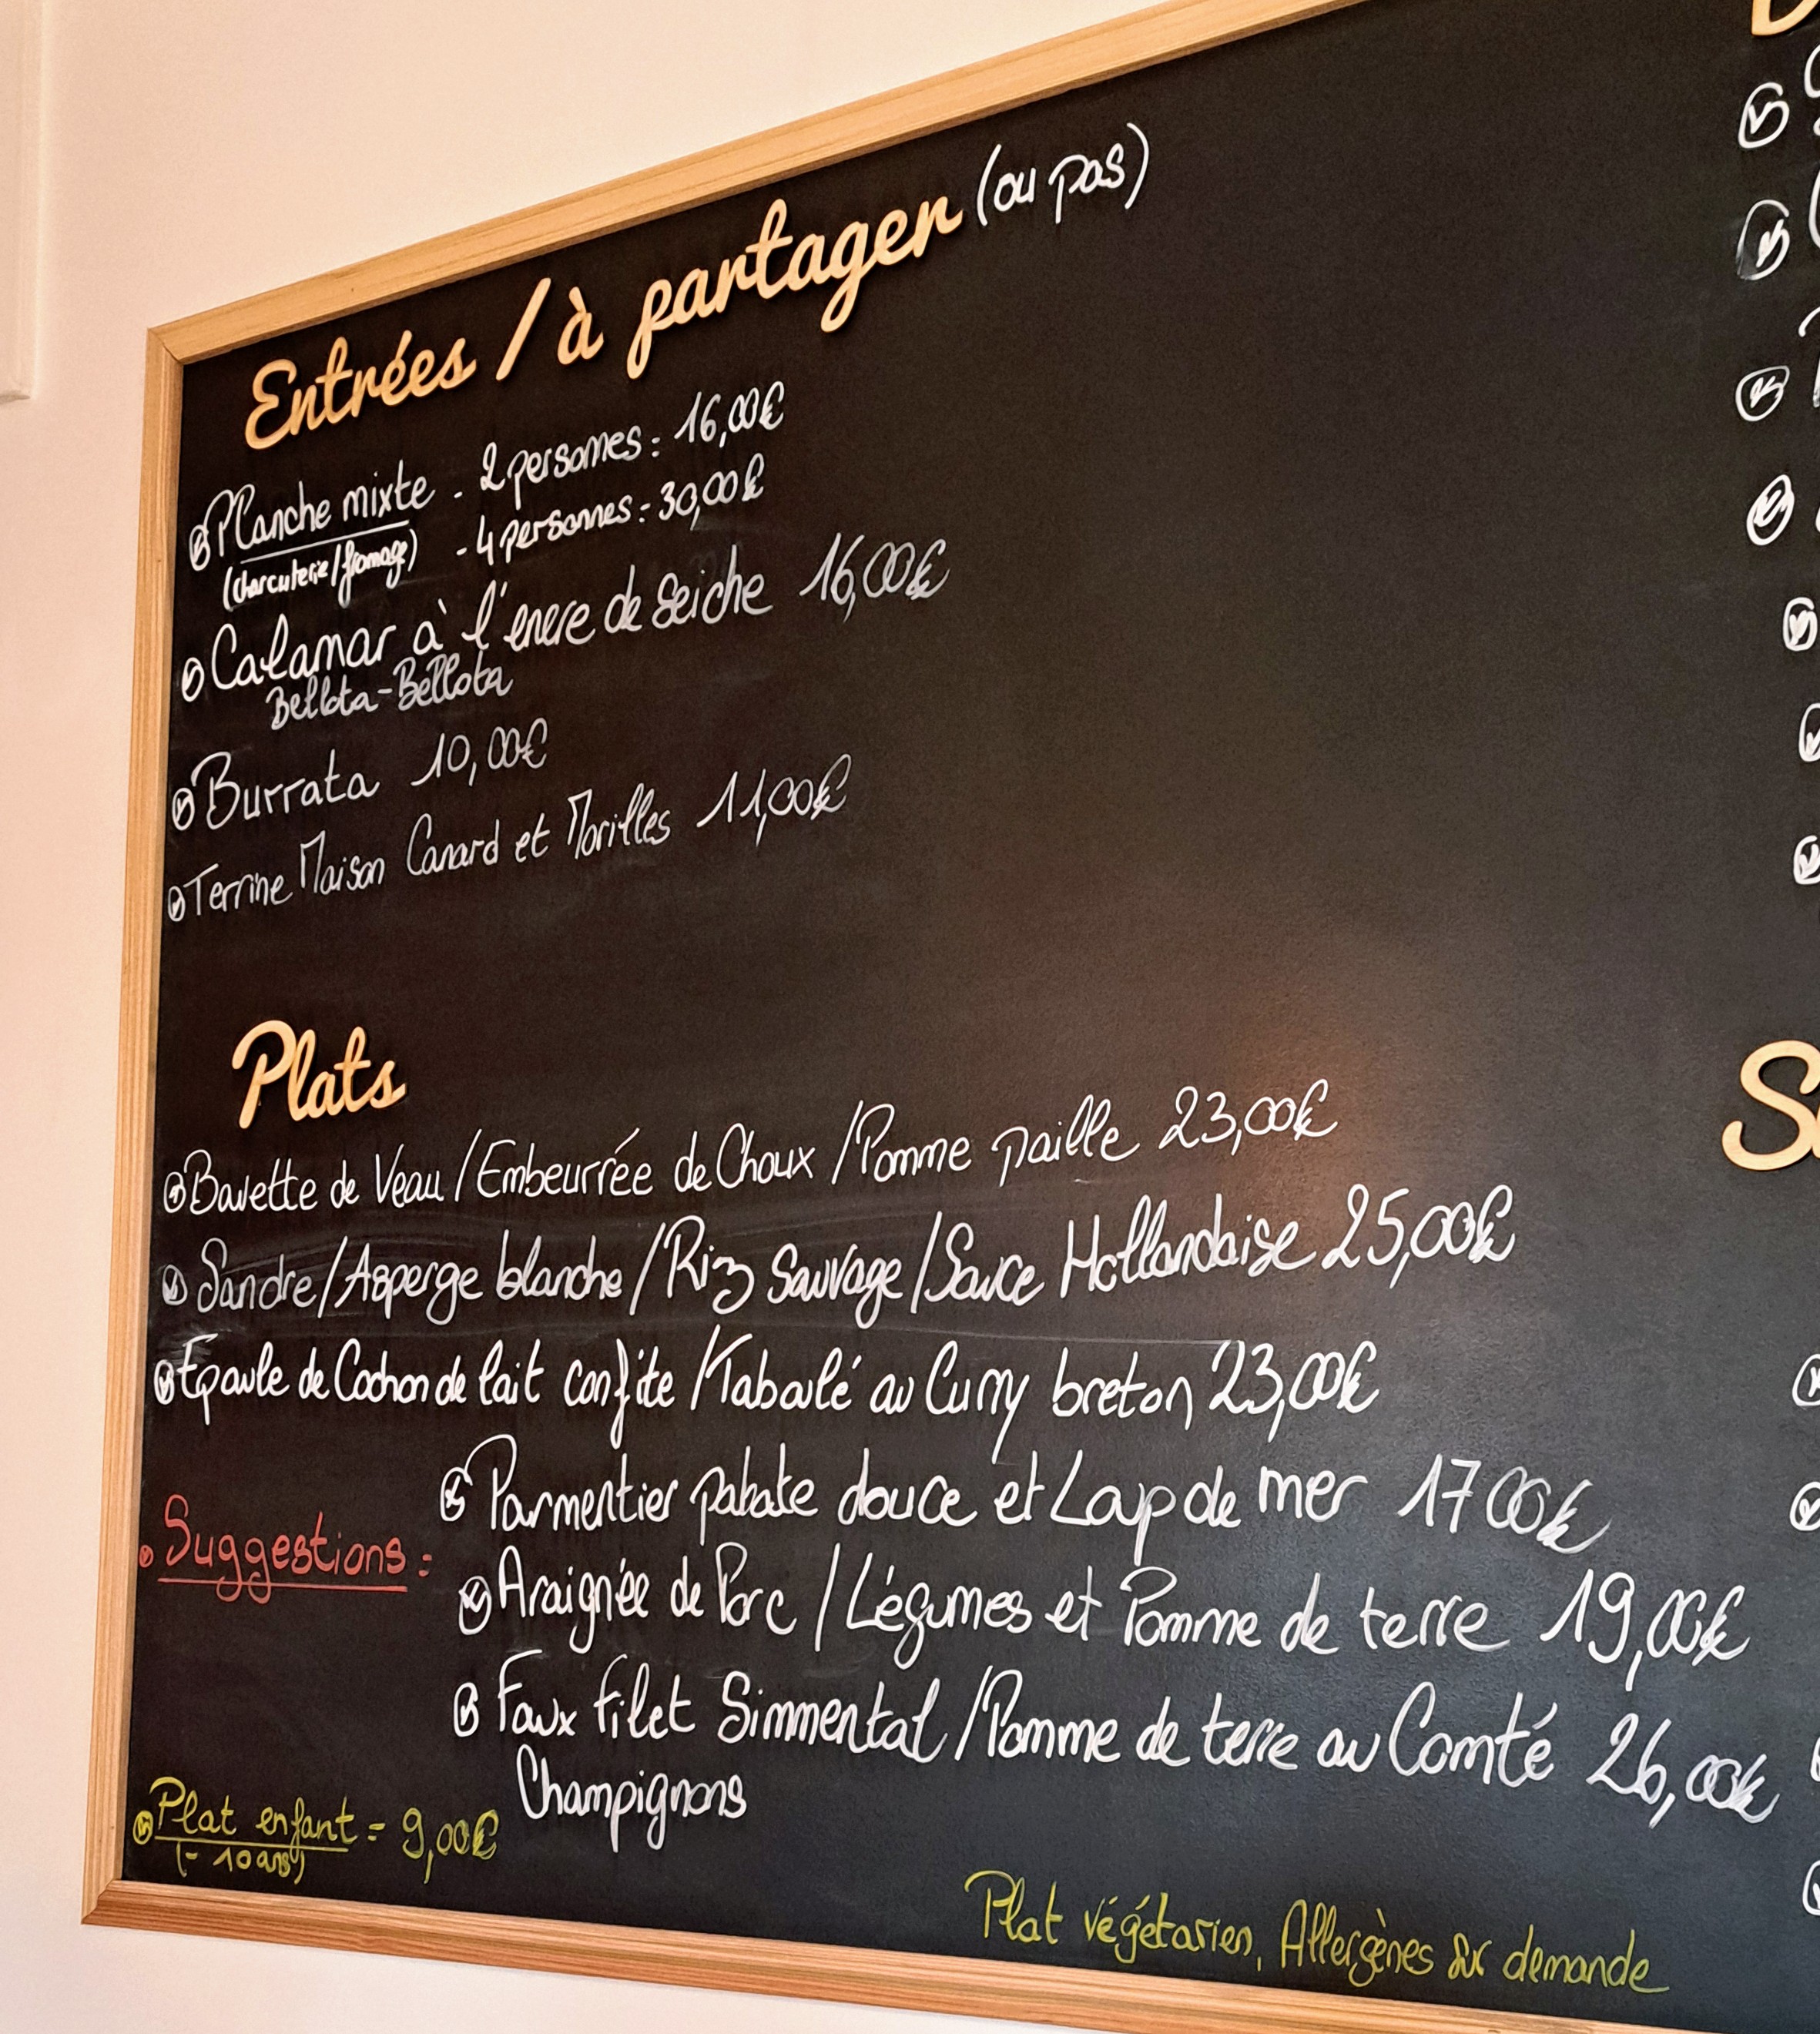 Entrées / à partager (ou pas)
Planche mixte - 2 personnes : 16,00€
(charcuterie/fromage) - 4 personnes : 30,00€
Calamar à l'encre de seiche 16,00€
Bellota-Bellota
Burrata 10,00€
Terrine Maison Canard et Morilles 11,00€
Plats
Bavette de Veau / Embeurrée de Choux / Pomme paille 23,00€
Sandre / Asperge blanche / Riz Sauvage / Sauce Hollandaise 25,00€
Epaule de Cochon de lait confite / Taboulé au Curry breton 23,00€
Suggestions :
Parmentier patate douce et Loup de mer 17 00€
Araignée de Porc / Légumes et Pomme de terre 19,00€
Faux filet Simmental / Pomme de terre au Comté 26,00€
Champignons
Plat enfant = 9,00€
(- 10 ans)
Plat végétarien, Allergènes sur demande